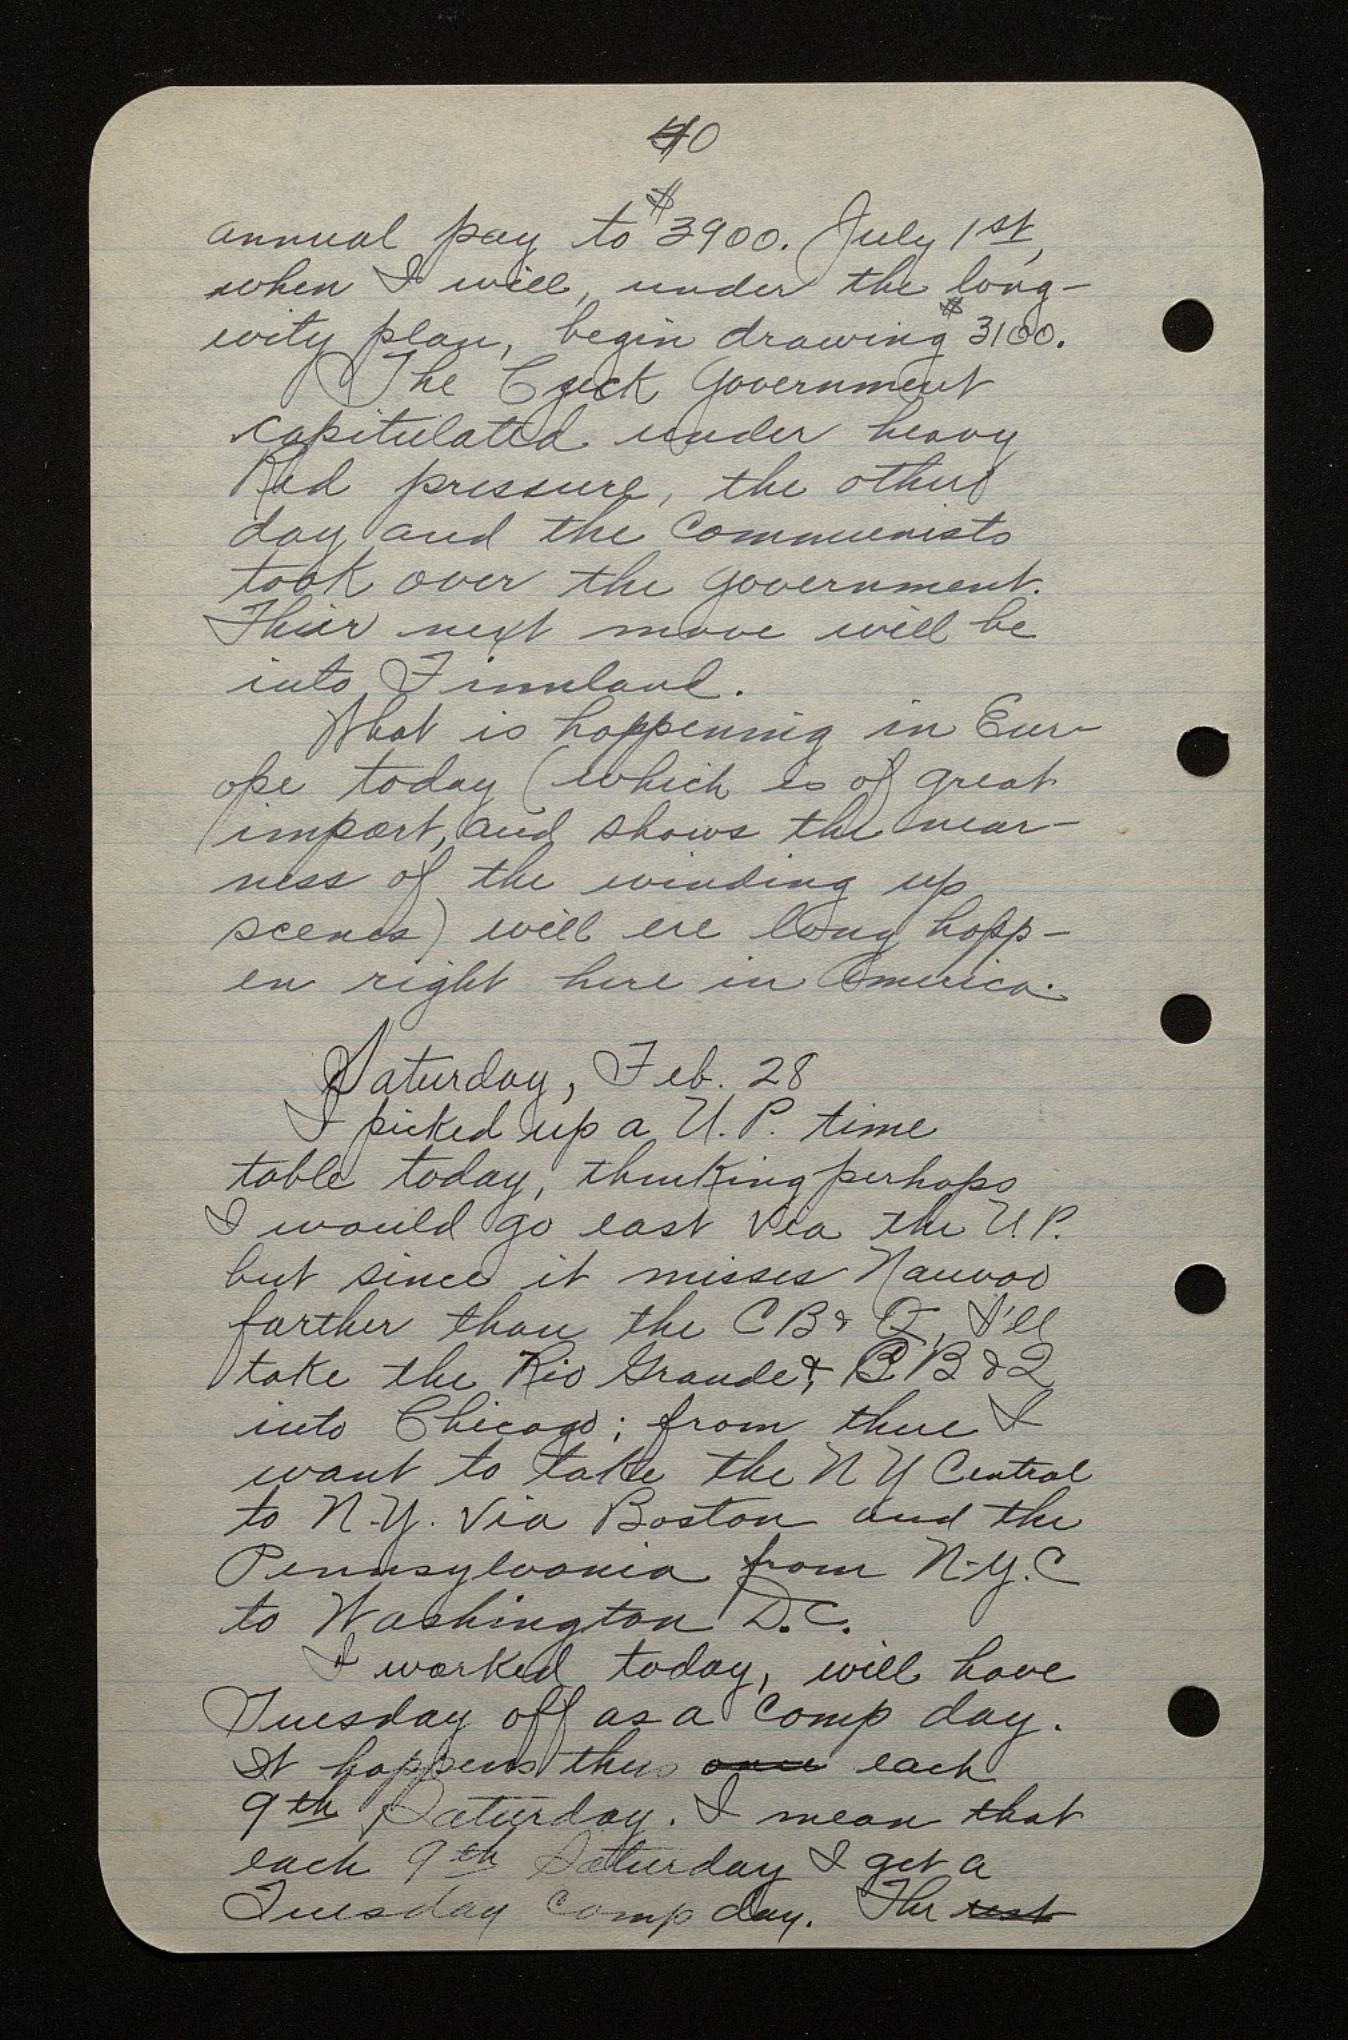 40
annual pay to $3900. July 1st,
when I will, under the long-
ivity plan, begin drawing $3100.
The Czeck Government
capitulated under heavy
Red pressure, the other
day and the Communists
took over the government.
Thier next move will be
into Finnland.
What is happening in Eur-
ope today (which is of great
import, and shows the near-
ness of the winding up
scenes) will ere long happ-
en right here in America.
Saturday, Feb. 28
I picked up a U.P. time
table today, thinking perhaps
I would go east via the U.P.
but since it misses Nauvoo
farther than the CB & Q, I'll
take the Rio Grande & CB & Q
into Chicago; from there I
want to take the N Y Central
to N.Y. via Boston and the
Pennsylvania from N.Y.C
to Washington D.C.
I worked today, will have
Tuesday off as a Comp day.
It happens thus once each
9th Saturday. I mean that
each 9th Saturday I get a
Tuesday Comp day. The rest